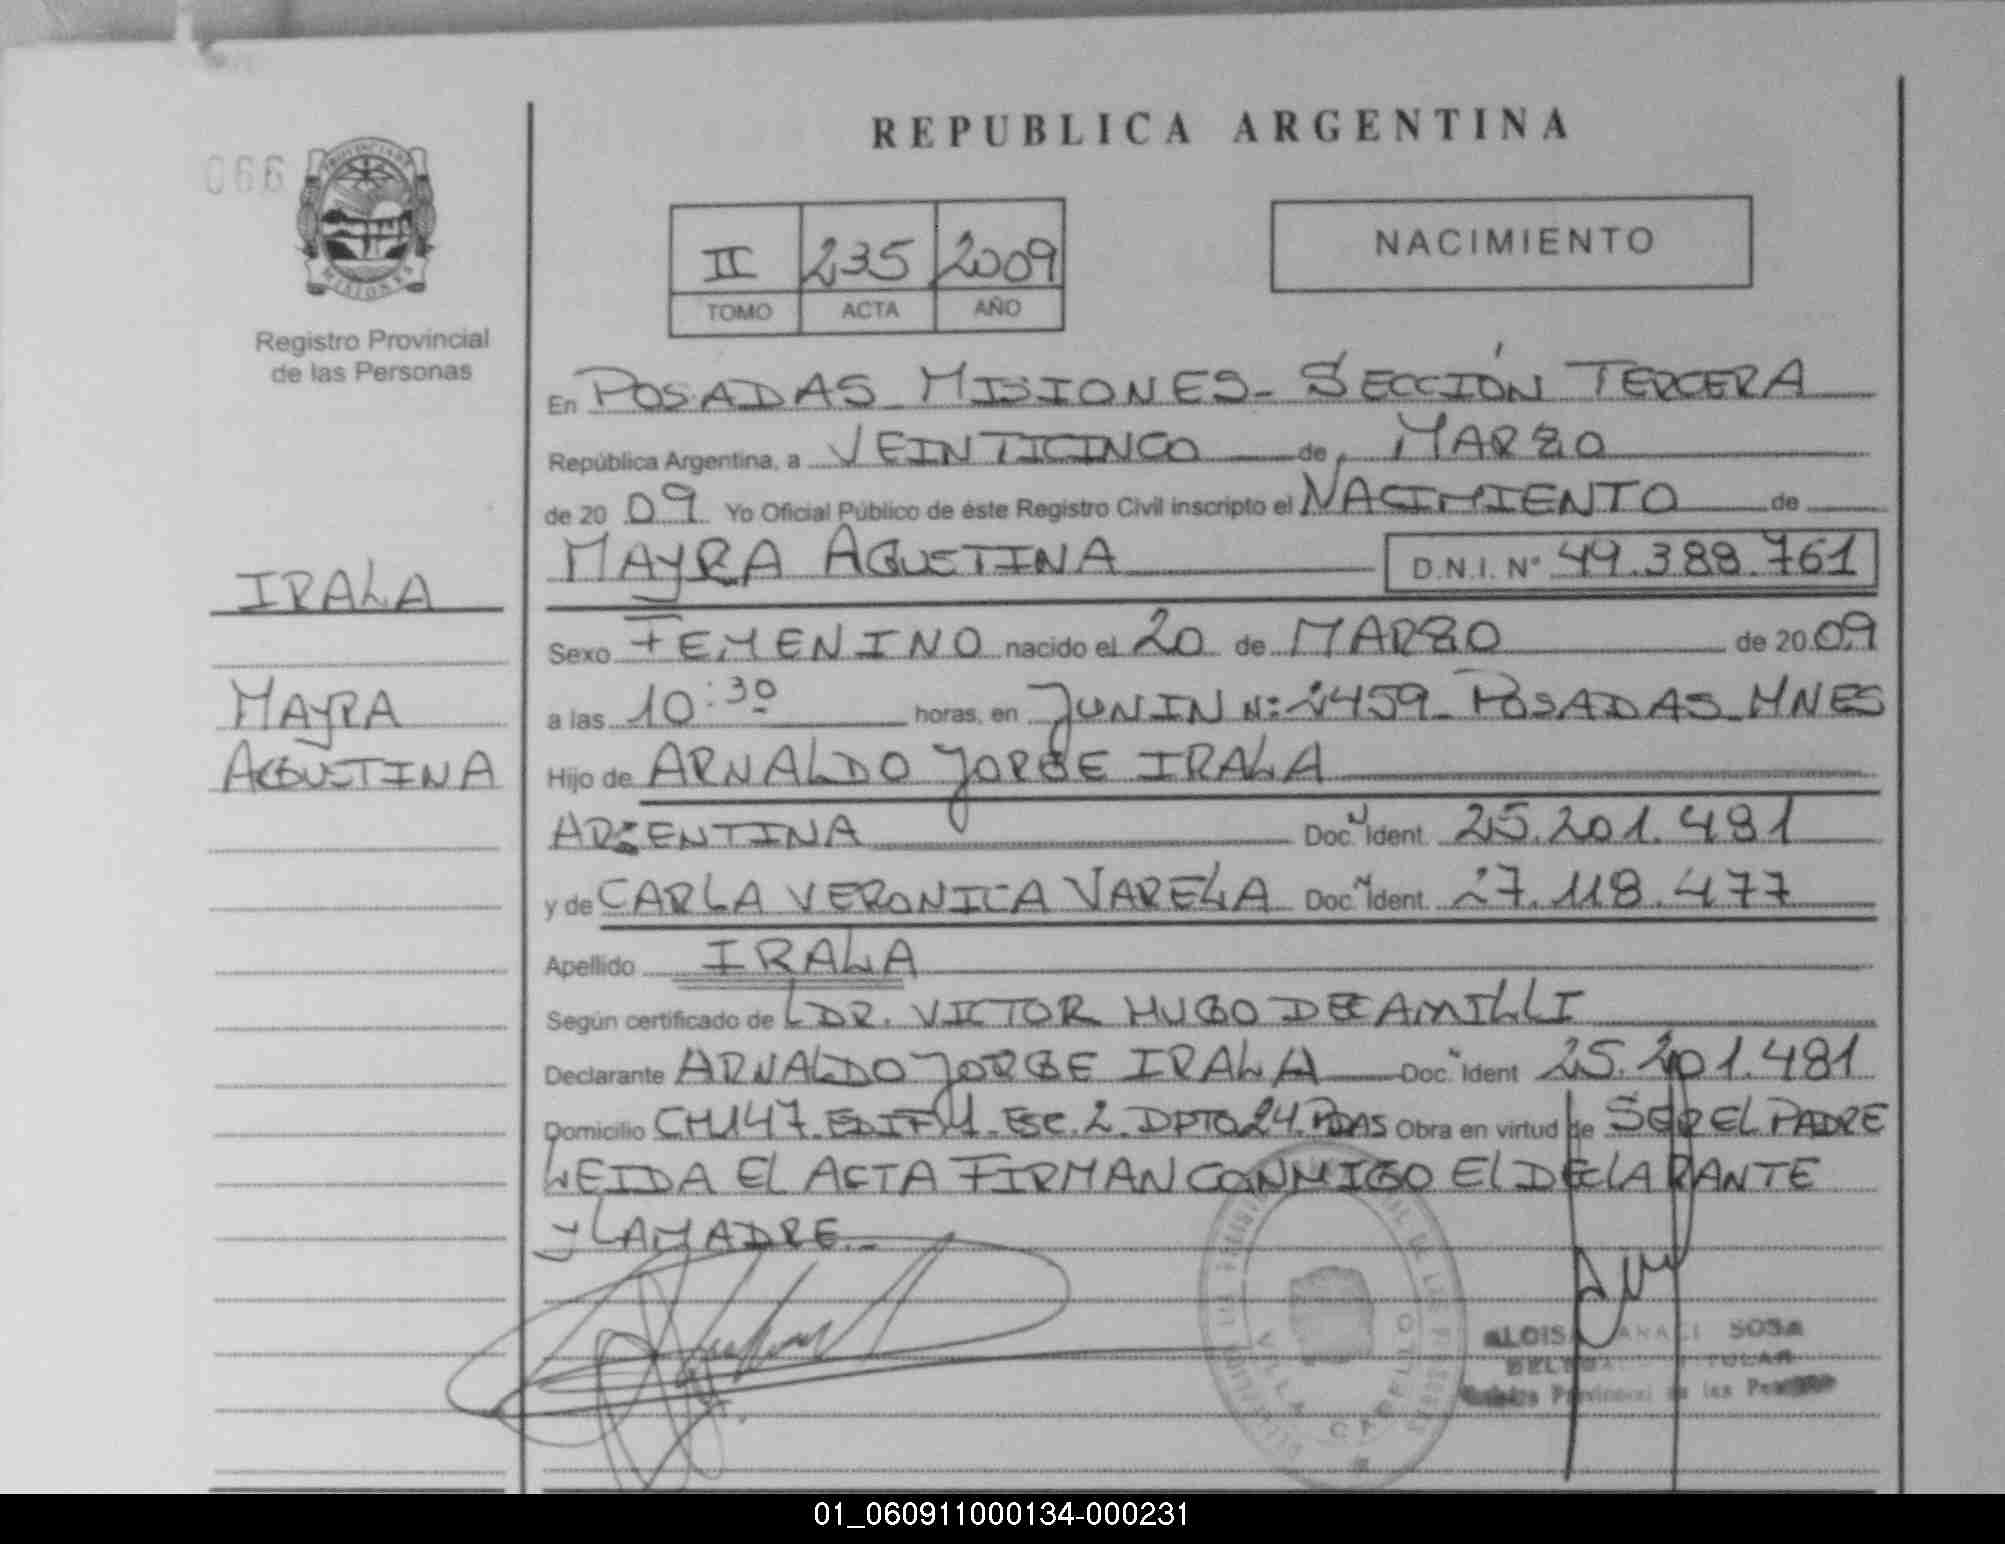 REPUBLICA ARGENTINA
066
PROVINCIA DE
MISIONES
Registro Provincial
de las Personas
II 235 2009
TOMO ACTA AÑO
NACIMIENTO
En POSADAS MISIONES - SECCIÓN TERCERA
República Argentina, a VEINTICINCO de MARZO
de 20 09 Yo Oficial Público de éste Registro Civil inscripto el NACIMIENTO de
MAYRA AGUSTINA D.N.I. Nº 49.388.761
IRALA
MAYRA
AGUSTINA
Sexo FEMENINO nacido el 20 de MARZO de 20 09
a las 10:30 horas, en JUNIN N: 2459 - POSADAS - MNES
Hijo de ARNALDO JORGE IRALA
ARGENTINA Doc. Ident. 25.201.481
y de CARLA VERONICA VARELA Doc. Ident. 27.118.477
Apellido IRALA
Según certificado de L DR. VICTOR HUGO DECAMILLI
Declarante ARNALDO JORGE IRALA Doc. Ident 25.201.481
Domicilio CH147 EDIF 1 - ESC. 2. DPTO 24. PDAS Obra en virtud de SER EL PADRE
LEIDA EL ACTA FIRMAN CONMIGO EL DECLARANTE
Y LA MADRE.-
VILLA CABELLO
SOSA
Provincial de las
01_060911000134-000231